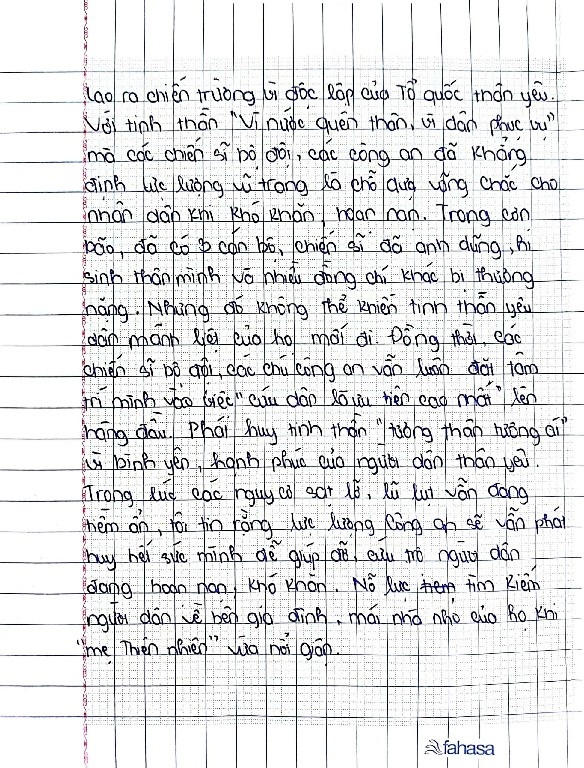 lao ra chiến trường vì độc lập của Tổ quốc thân yêu.
Với tinh thần "Vì nước quên thân, vì dân phục vụ"
mà các chiến sĩ bộ đội, các công an đã khẳng
định lực lượng vũ trang là chỗ dựa vững chắc cho
nhân dân khi khó khăn, hoạn nạn. Trong cơn
bão, đã có 3 cán bộ, chiến sĩ đã anh dũng, hi
sinh thân mình và nhiều đồng chí khác bị thương
nặng. Nhưng đó không thể khiến tinh thần yêu
dân mãnh liệt của họ mất đi. Đồng thời, các
chiến sĩ bộ đội, các chú công an vẫn luôn đặt tâm
trí mình vào việc "cứu dân là ưu tiên cao nhất" lên
hàng đầu. Phát huy tinh thần "tương thân tương ái"
vì bình yên, hạnh phúc của người dân thân yêu.
Trong lúc các nguy cơ sạt lở, lũ lụt vẫn đang
tiềm ẩn, tôi tin rằng lực lượng Công an sẽ vẫn phát
huy hết sức mình để giúp đỡ, cứu trợ người dân
đang hoạn nạn, khó khăn. Nỗ lực tìm kiếm
người dân về bên gia đình, mái nhà nhỏ của họ khi
"mẹ Thiên nhiên" vừa nổi giận.
fahasa